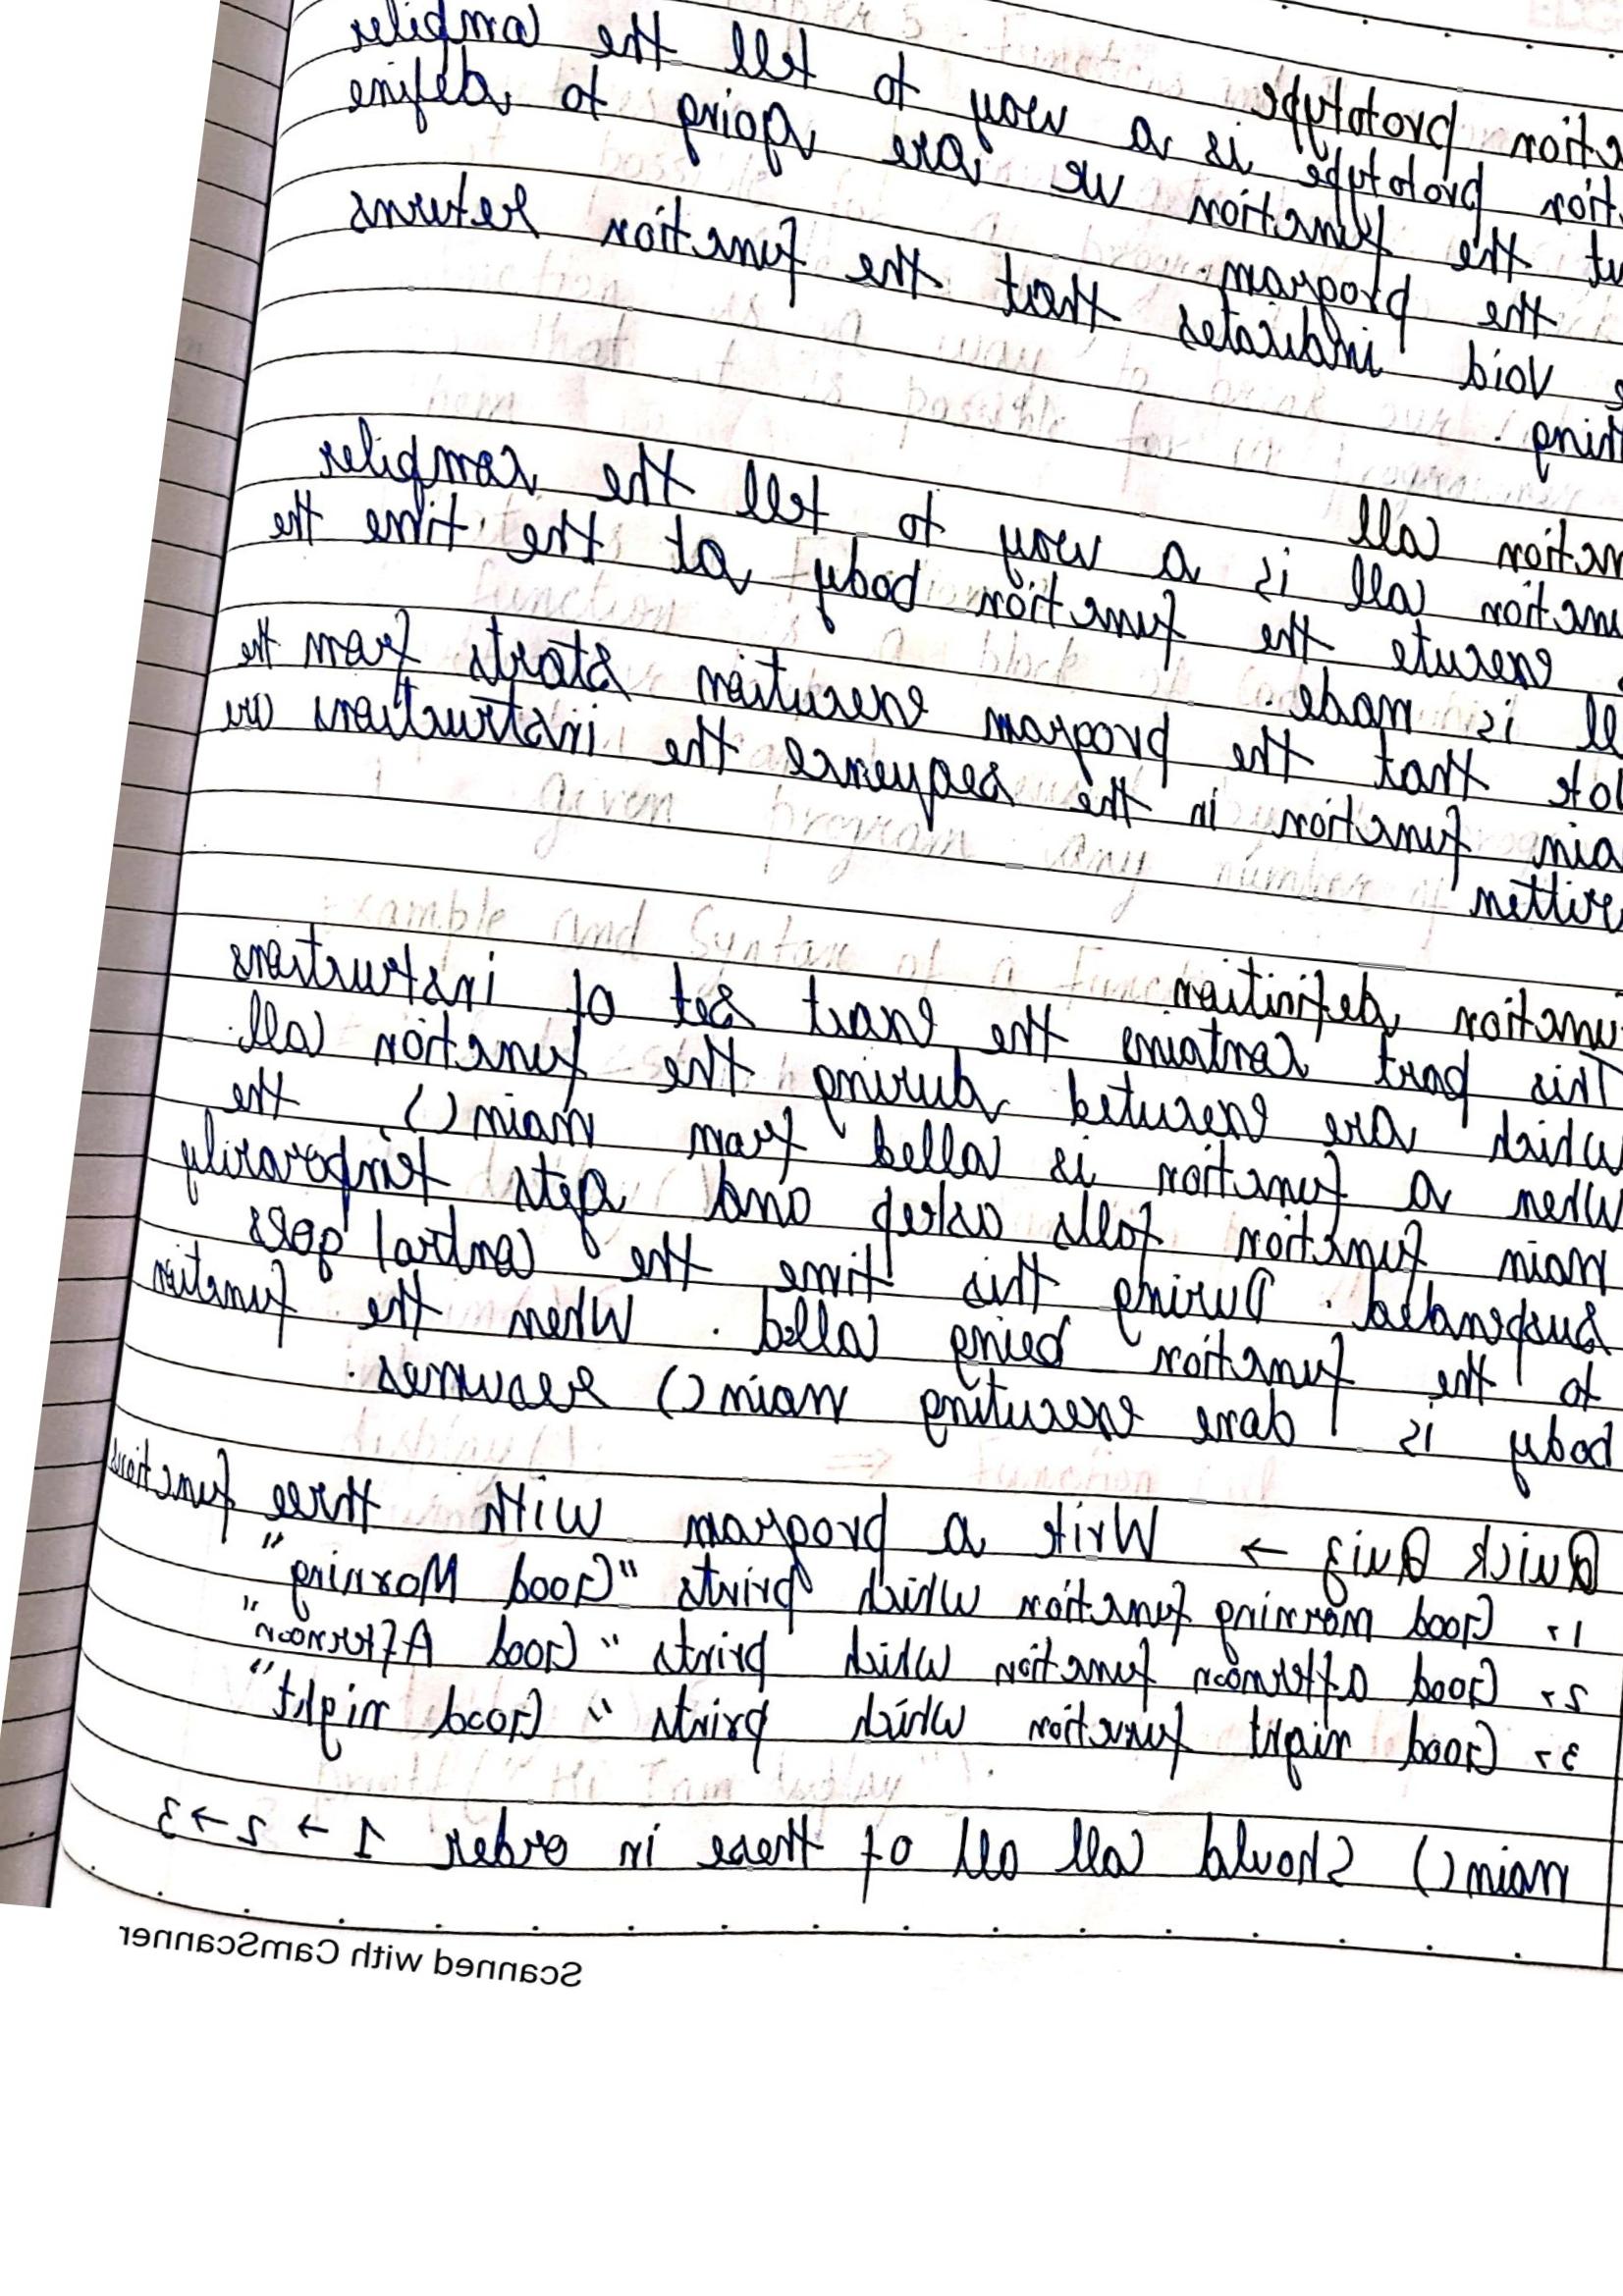 ction prototype
tion prototype is a way to tell the compiler
ut the function we are going to define
the program.
void indicates that the function returns
thing.
nction call
unction call is a way to tell the compiler
execute the function body at the time the
ll is made.
ote that the program execution starts from the
ain function in the sequence the instructions are
written
unction definition
This part contains the exact set of instructions
which are executed during the function call.
When a function is called from main() the
main function falls asleep and gets temporarily
suspended. During this time the control goes
to the function being called. When the function
body is done executing main() resumes.
Quick Quiz → Write a program with three functions
1, Good morning function which prints "Good Morning"
2, Good afternoon function which prints "Good Afternoon"
3, Good night function which prints "Good night"
main() should call all of these in order 1 → 2 → 3
Scanned with CamScanner